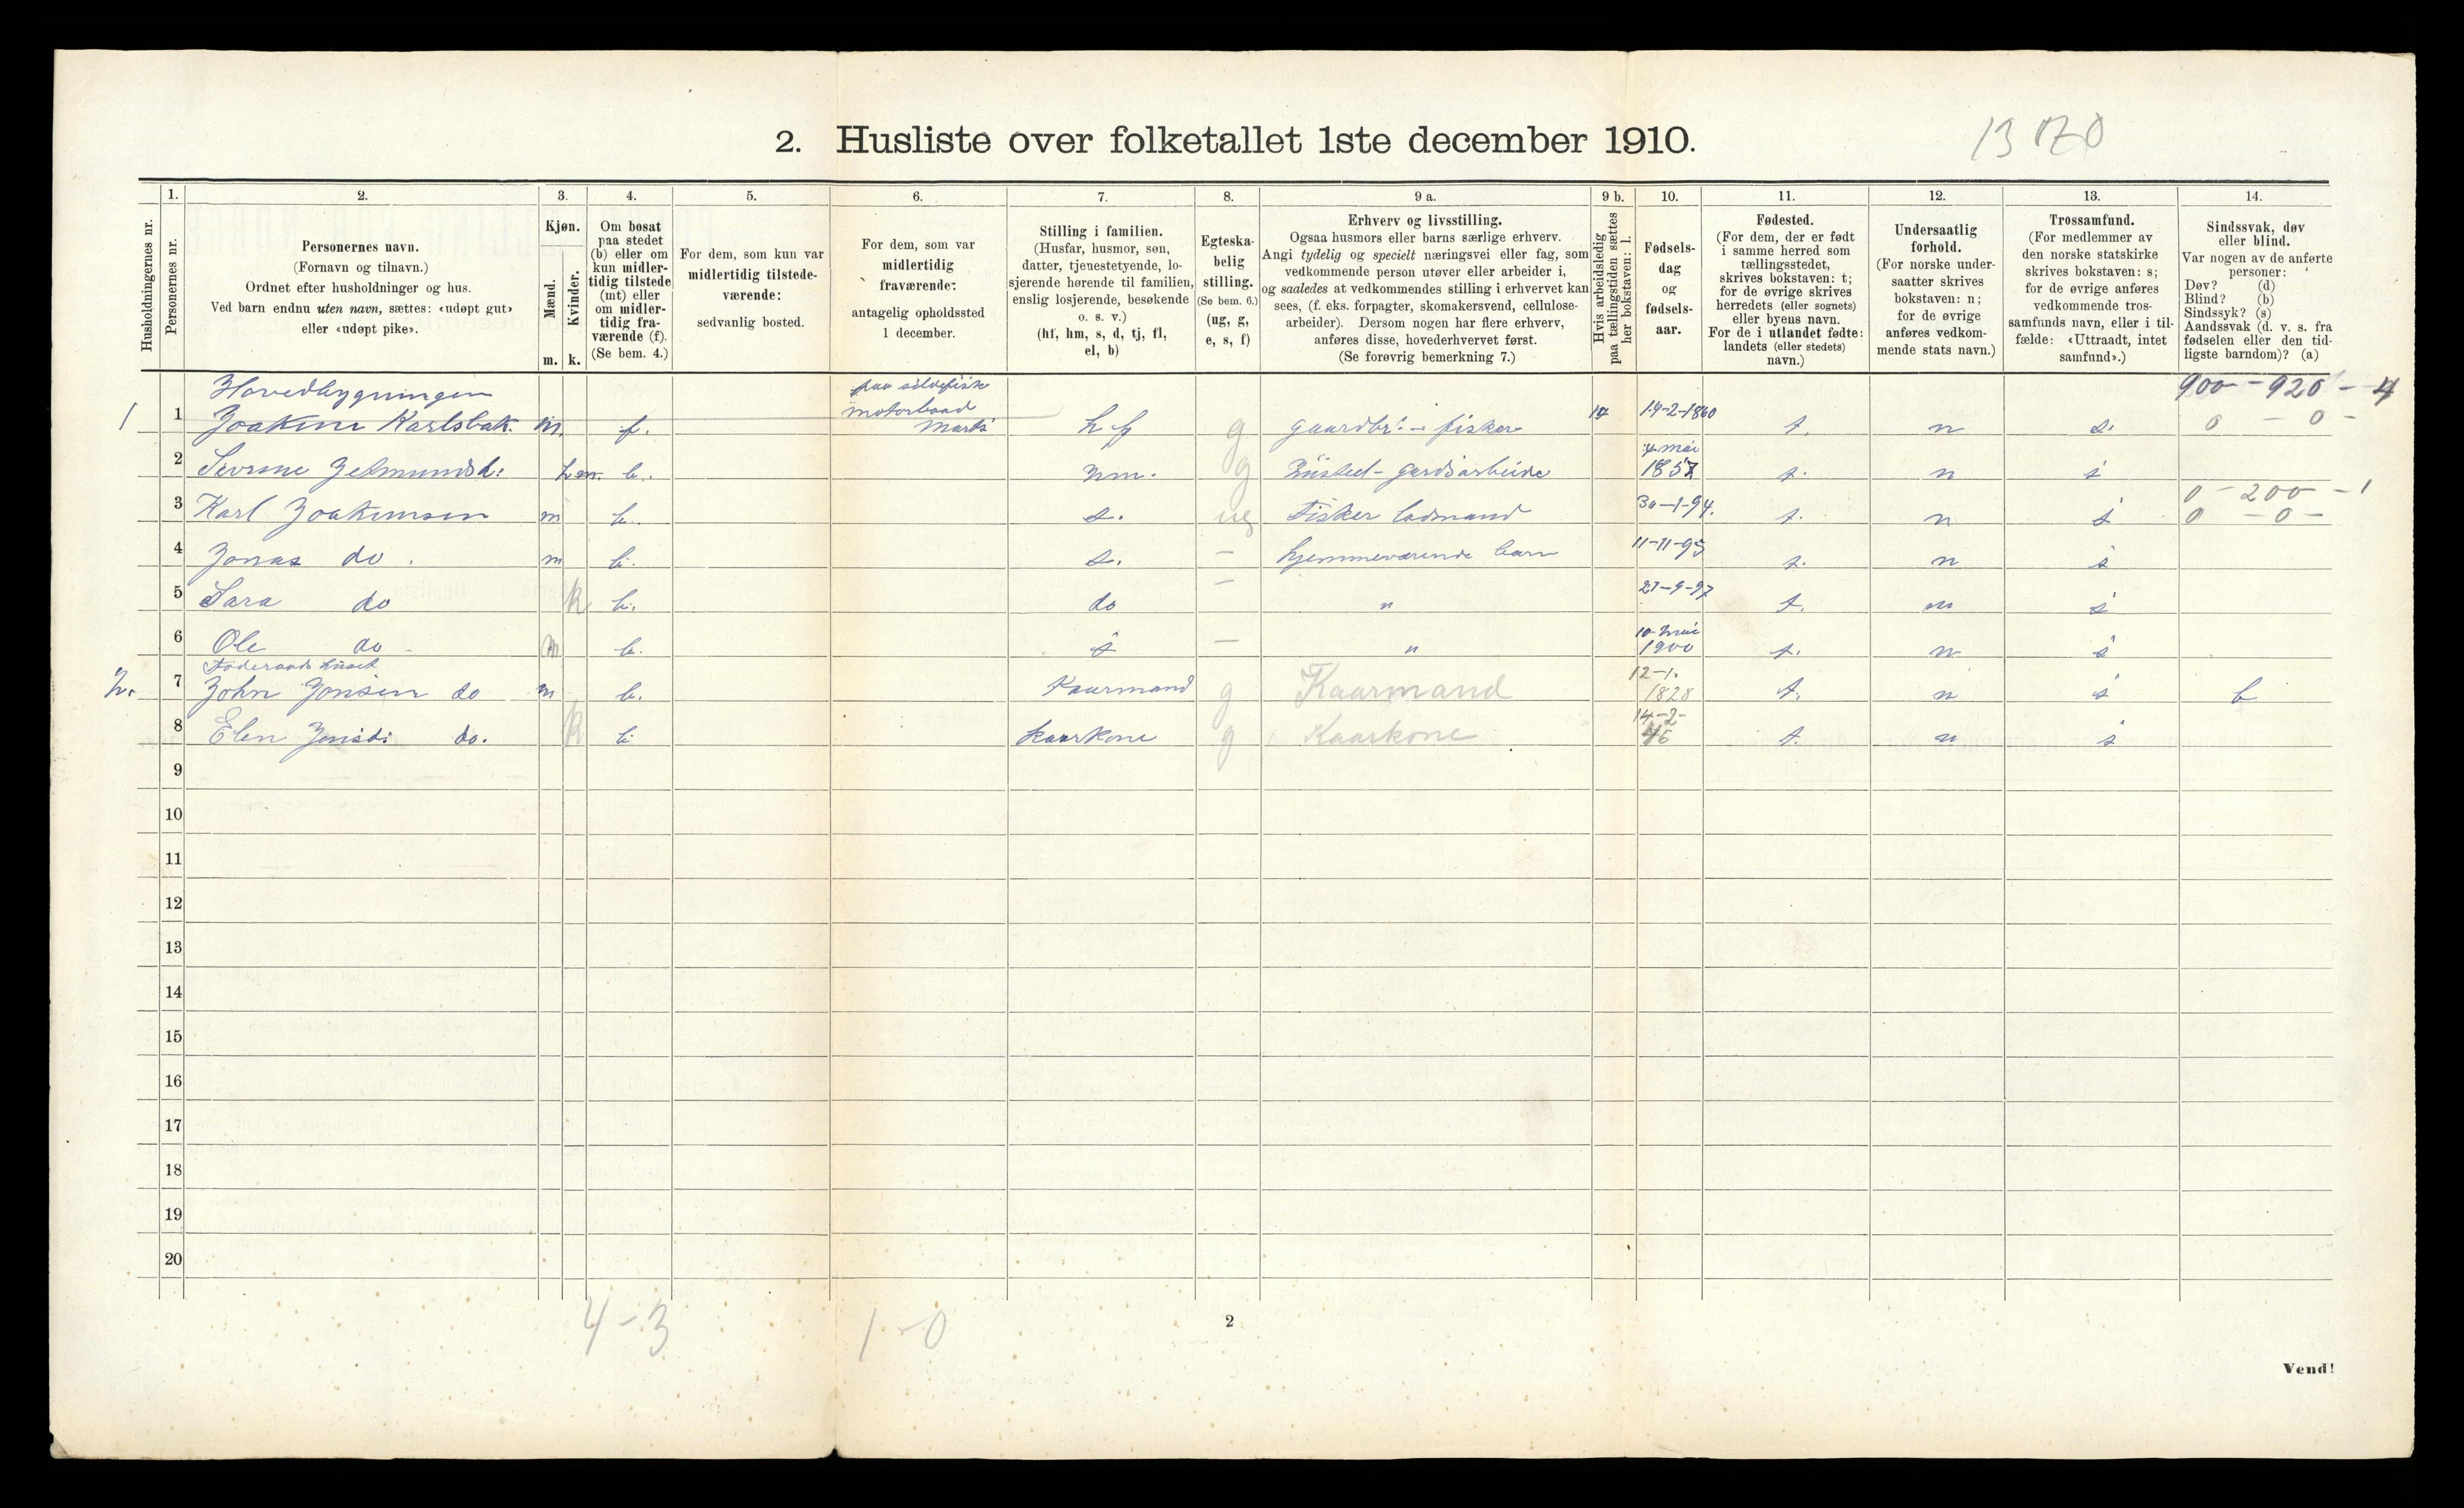 2. Husliste over folketallet 1ste december 1910.
13
Husholdningernes nr.
1.
Personernes nr.
2.
Personernes navn.
(Fornavn og tilnavn.)
Ordnet efter husholdninger og hus.
Ved barn endnu uten navn, sættes: «udøpt gut»
eller «udøpt pike».
3.
Kjøn.
Mænd.
Kvinder.
m. k.
4.
Om bosat
paa stedet
(b) eller om
kun midler-
tidig tilstede
(mt) eller
om midler-
tidig fra-
værende (f).
(Se bem. 4.)
5.
For dem, som kun var
midlertidig tilstede-
værende:
sedvanlig bosted.
6.
For dem, som var
midlertidig
fraværende:
antagelig opholdssted
1 december.
7.
Stilling i familien.
(Husfar, husmor, søn,
datter, tjenestetyende, lo-
sjerende hørende til familien,
enslig losjerende, besøkende
o. s. v.)
(hf, hm, s, d, tj, fl,
el, b)
8.
Egteska-
belig
stilling.
(Se bem. 6.)
(ug, g,
e, s, f)
9 a.
Erhverv og livsstilling.
Ogsaa husmors eller barns særlige erhverv.
Angi tydelig og specielt næringsvei eller fag, som
vedkommende person utøver eller arbeider i,
og saaledes at vedkommendes stilling i erhvervet kan
sees, (f. eks. forpagter, skomakersvend, cellulose-
arbeider). Dersom nogen har flere erhverv,
anføres disse, hovederhvervet først.
(Se forøvrig bemerkning 7.)
9 b.
Hvis arbeidsledig
paa tællingstiden sættes
her bokstaven: l.
10.
Fødsels-
dag
og
fødsels-
aar.
11.
Fødested.
(For dem, der er født
i samme herred som
tællingsstedet,
skrives bokstaven: t;
for de øvrige skrives
herredets (eller sognets)
eller byens navn.
For de i utlandet fødte:
landets (eller stedets)
navn.)
12.
Undersaatlig
forhold.
(For norske under-
saatter skrives
bokstaven: n;
for de øvrige
anføres vedkom-
mende stats navn.)
13.
Trossamfund.
(For medlemmer av
den norske statskirke
skrives bokstaven: s;
for de øvrige anføres
vedkommende tros-
samfunds navn, eller i til-
fælde: «Uttraadt, intet
samfund».)
14.
Sindssvak, døv
eller blind.
Var nogen av de anførte
personer:
Døv? (d)
Blind? (b)
Sindssyk? (s)
Aandssvak (d. v. s. fra
fødselen eller den tid-
ligste barndom)? (a)
Hovedbygningen 900 - 920 - 4
1 1 Joakim Karlsbak. m. f. motorbaad hf g gaardbr. - fisker 14-2-1860 t. n s. 0 - 0 -
2 b. g 4 mai 1857 t. n s
3 Karl Joakimsen m b. s. ug Fisker 30-1-94. t. n s 0 - 200 - 1
0 - 0 -
4 Jonas do. m b. s. - hjemmeværende barn 11-11-95 t. n s
5 Sara do k b. do - " 27-9-97 t. n s
6 Ole do m b. s - " 10 mai 1900 t. n s
2. 7 John Jonsen do m b. Kaarmand g Kaarmand 12-1. 1828 t. n s b
8 Elen Jonsd. do. k b kaarkone g Kaarkone 14-2- t. n s
9
10
11
12
13
14
15
16
17
18
19
20
4-3 1-0
2
Vend!